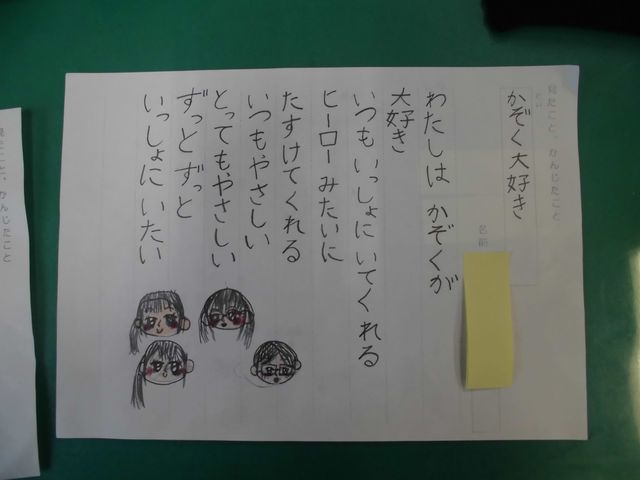 見たこと、かんじたこと
だい
かぞく大好き
名前
わたしは かぞくが
大好き
いつも いっしょにいてくれる
ヒーローみたいに
たすけてくれる
いつもやさしい
とってもやさしい
ずっと ずっと
いっしょに いたい
見たこと、かんじたこと